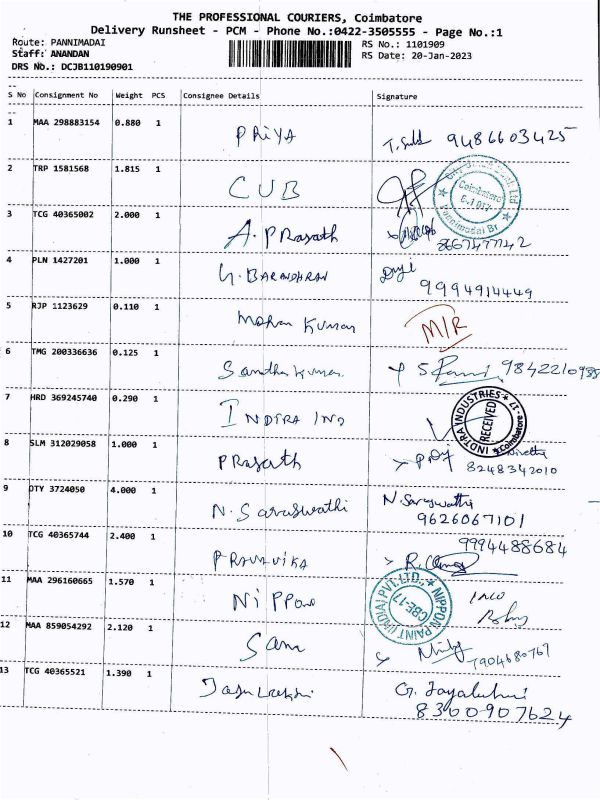 THE PROFESSIONAL COURIERS, Coimbatore
Delivery Runsheet - PCM - Phone No.:0422-3505555 - Page No.:1
Route: PANNIMADAI
Staff: ANANDAN
DRS No.: DCJB110190901
RS No.: 1101909
RS Date: 20-Jan-2023
S No Consignment No Weight PCS Consignee Details Signature
1 MAA 298883154 0.880 1 PRIYA 9486603425
2 TRP 1581568 1.815 1 CUB
Coimbatore
Pannimadai Br
3 TCG 40365002 2.000 1 A. PRasath
8667477142
4 PLN 1427201 1.000 1 G. BARANDHRAN
9994914449
5 RJP 1123629 0.110 1 Mohan Kumar M/R
6 TMG 200336636 0.125 1 Santha Kumar 9842210988
7 HRD 369245740 0.290 1 INDTRA IND
INDTRA INDUSTRIES - 17 - Coimbatore
RECEIVED
8 SLM 312029058 1.000 1 PRasath
8248342010
9 DTY 3724050 4.000 1 N. Saraswathi N Saraswathi
9626067101
10 TCG 40365744 2.400 1 PRANVIKA 9994488684
11 MAA 296160665 1.570 1 NiPPon
NIPPON PAINT (INDIA) PVT. LTD.,
CBE-17
12 MAA 859054292 2.120 1 Sam
7904680767
13 TCG 40365521 1.390 1 G. Jayalakshmi
8300907624